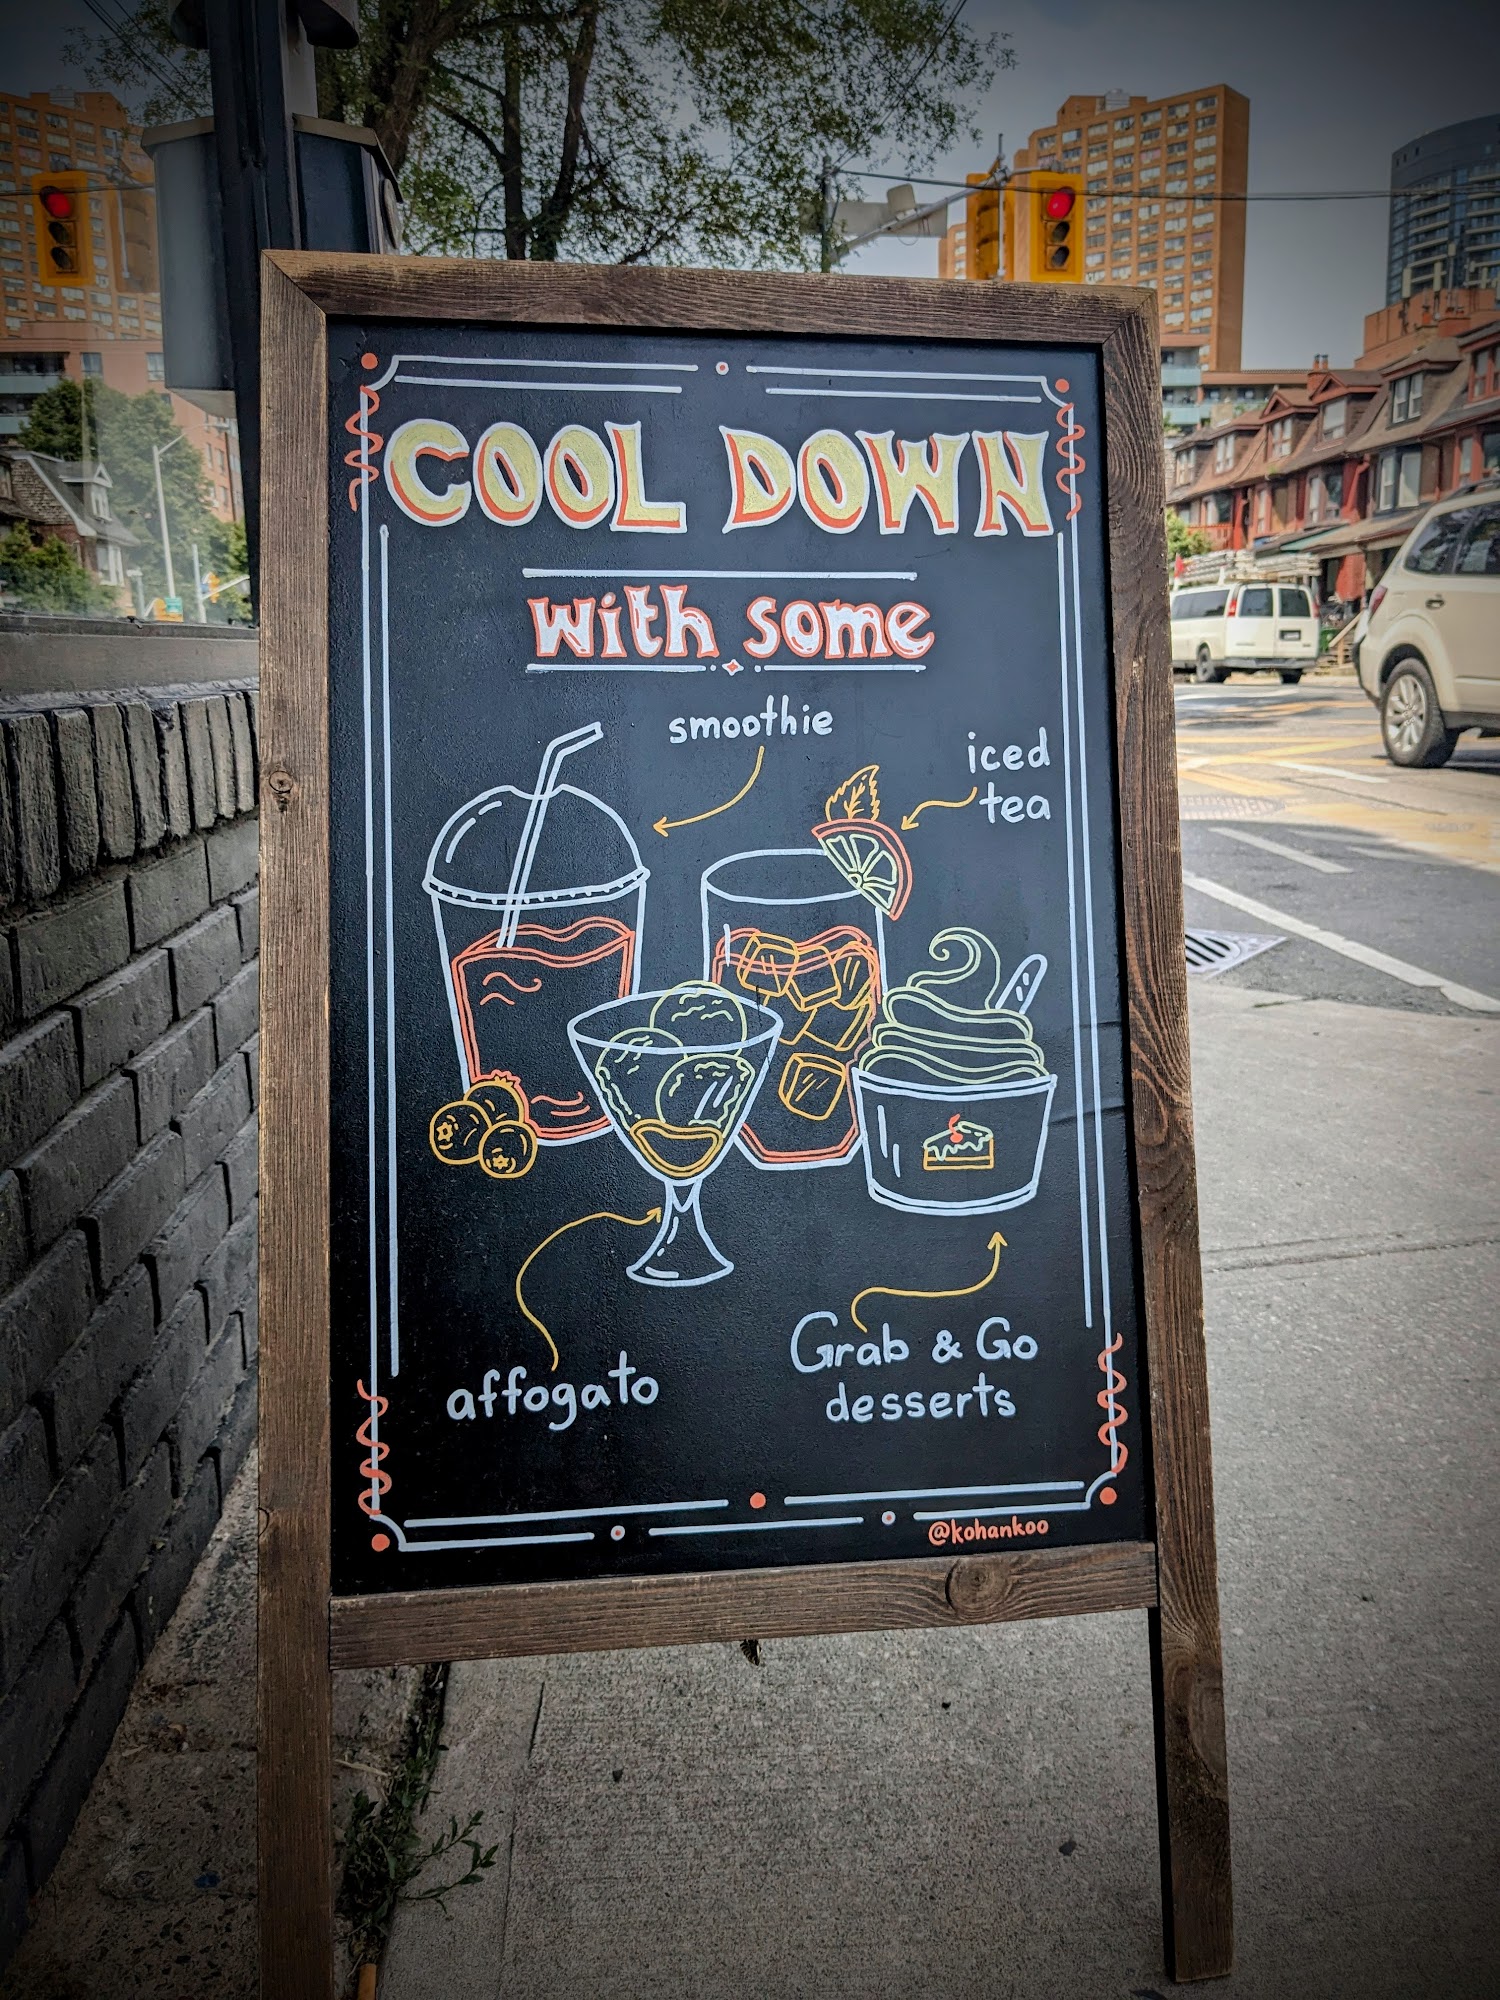 COOL DOWN
with some
smoothie
iced
tea
affogato
Grab & Go
desserts
@kohankoo